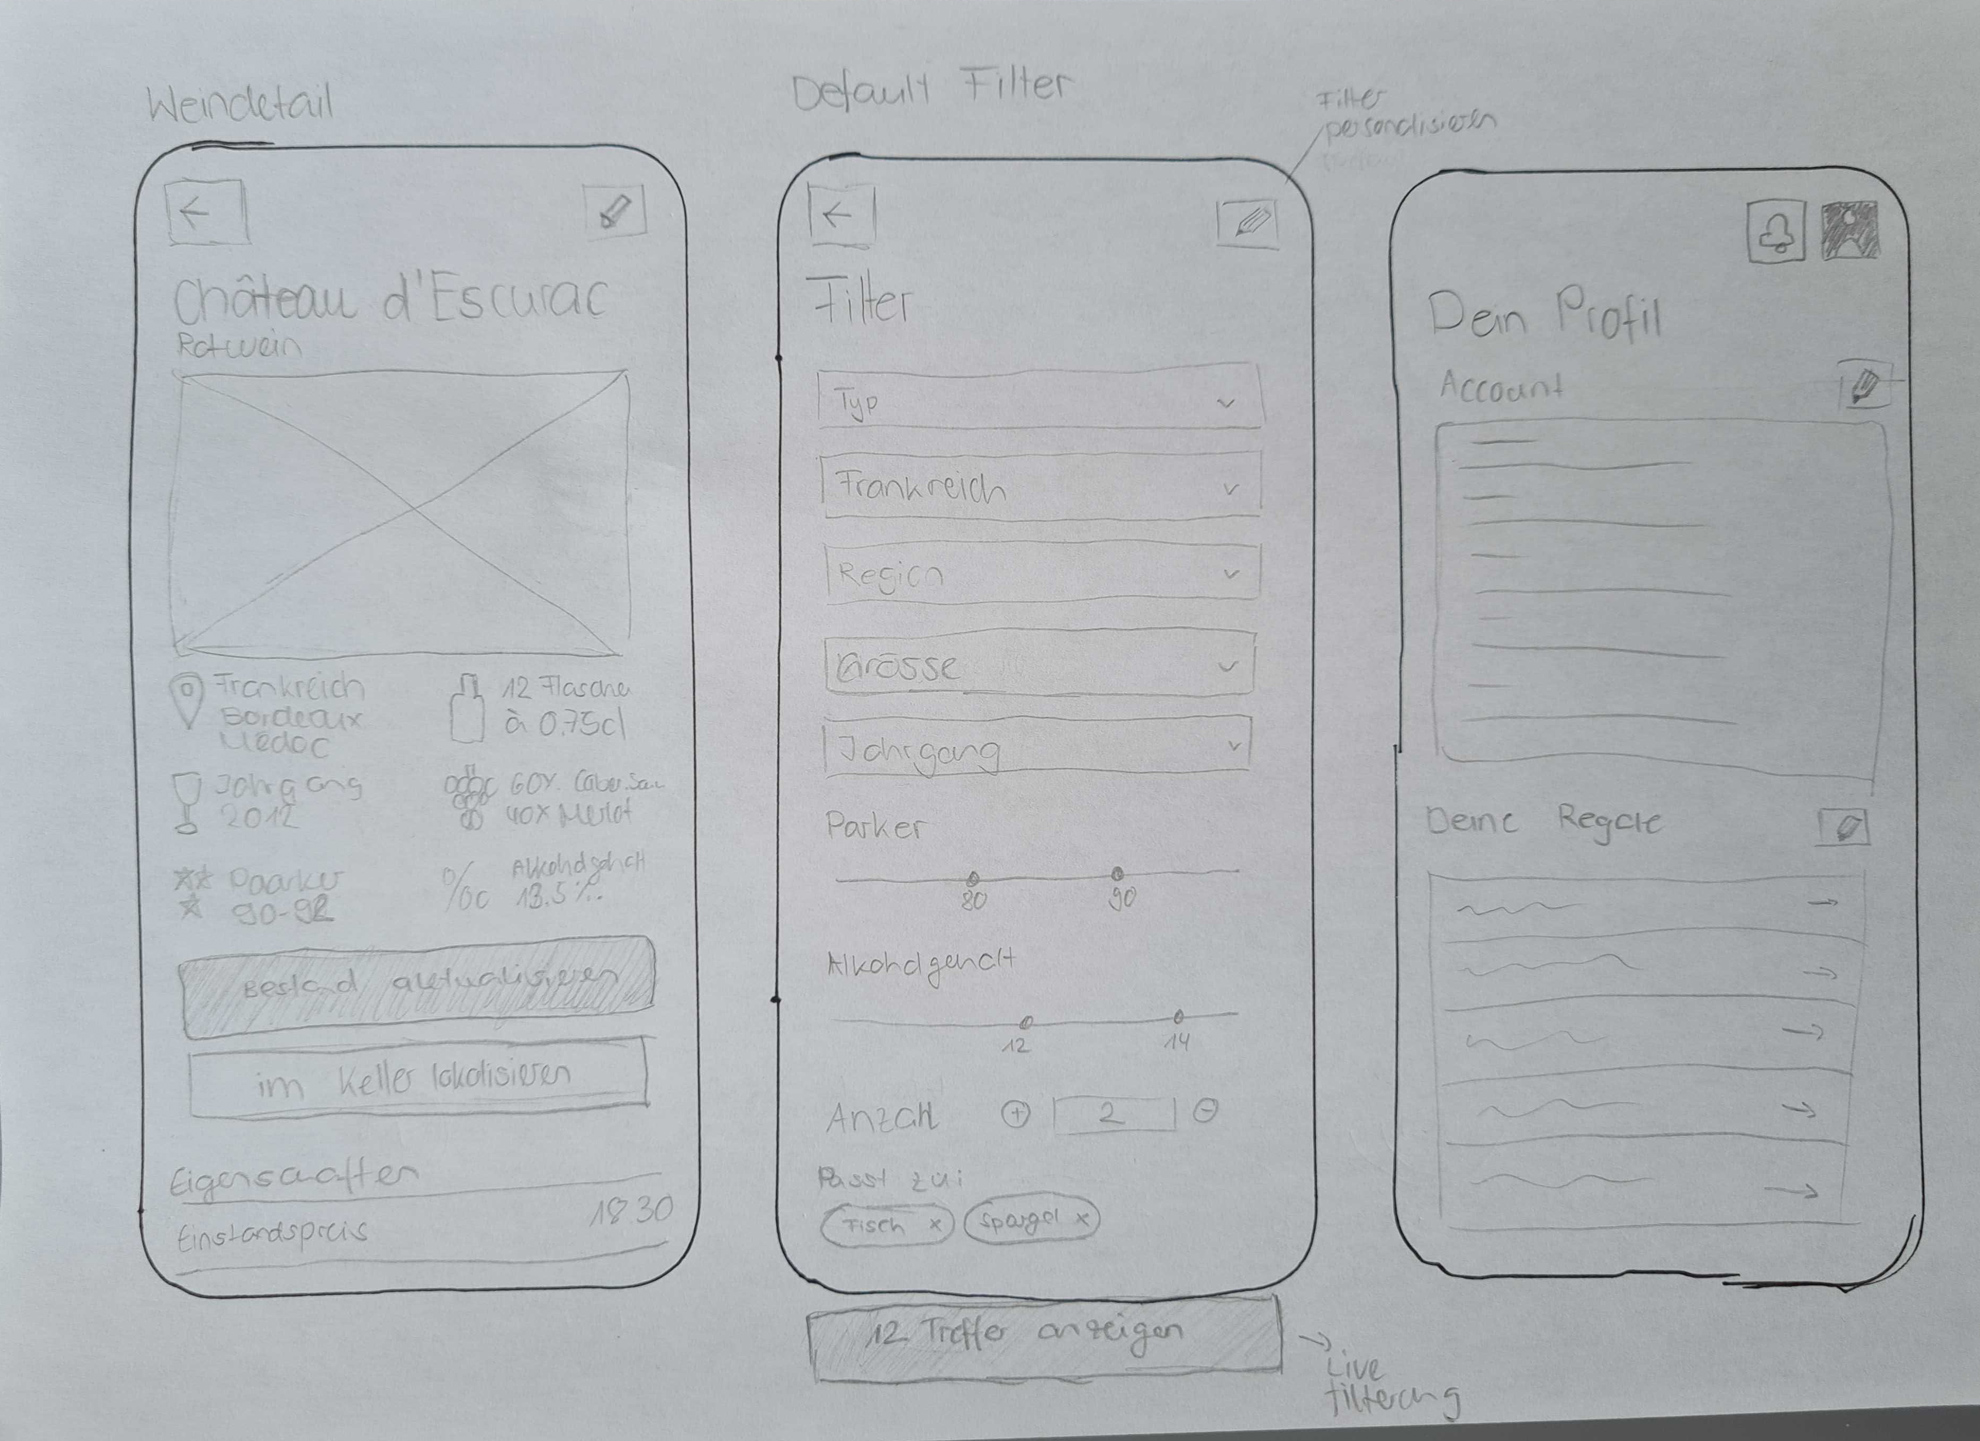 Weindetail
Château d'Escurac
Rotwein
Frankreich
Bordeaux
Médoc
12 Flasche
à 0,75cl
Jahrgang
2012
60% Caber.Sau
40% Merlot
Paarker
90-92
%
Alkoholgehalt
13.5%
Bestand aktualisieren
im Keller lokalisieren
Eigenschaften
Einstandspreis 18.30
Default Filter
Filter
personalisieren
Filter
Typ
Frankreich
Region
Grösse
Jahrgang
Parker
80 90
Alkoholgehalt
12 14
Anzahl + 2 -
Passt zu:
Fisch x Spargel x
12 Treffer anzeigen
Live
filterung
Dein Profil
Account
Deine Regale